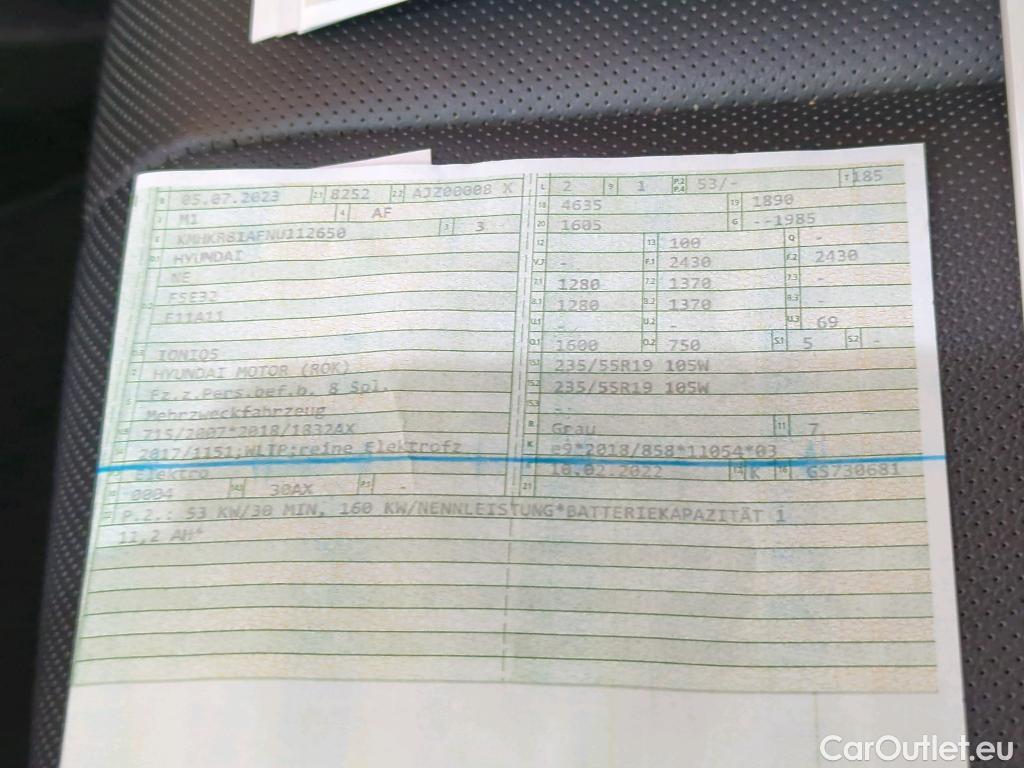 B 05.07.2023 2.1 8252 2.2 AJZ00008 X
J M1 4 AF
E KMHKR81AFNU112650 3 3
D.1 HYUNDAI
NE
D.2 F5E32
E11A11
D.3 IONIQ5
2 HYUNDAI MOTOR (ROK)
5 Fz.z.Pers.bef.b. 8 Spl.
Mehrzweckfahrzeug
V.9 715/2007*2018/1832AX
14 2017/1151;WLTP;reine Elektrofz
Elektro
10 0004 14.1 30AX P.1 -
22 P.2.: 53 KW/30 MIN, 160 KW/NENNLEISTUNG*BATTERIEKAPAZITÄT 1
11,2 AH*
L 2 9 1 P.2 P.4 53/- T 185
18 4635 19 1890
20 1605 G --1985
12 - 13 100 Q -
V.7 - F.1 2430 F.2 2430
7.1 1280 7.2 1370 7.3 -
8.1 1280 8.2 1370 8.3 -
U.1 - U.2 - U.3 69
O.1 1600 O.2 750 S.1 5 S.2 -
15.1 235/55R19 105W
15.2 235/55R19 105W
15.3 -
R Grau 11 7
K e9*2018/858*11054*03
6 10.02.2022 17 K 16 GS730681
21
CarOutlet.eu